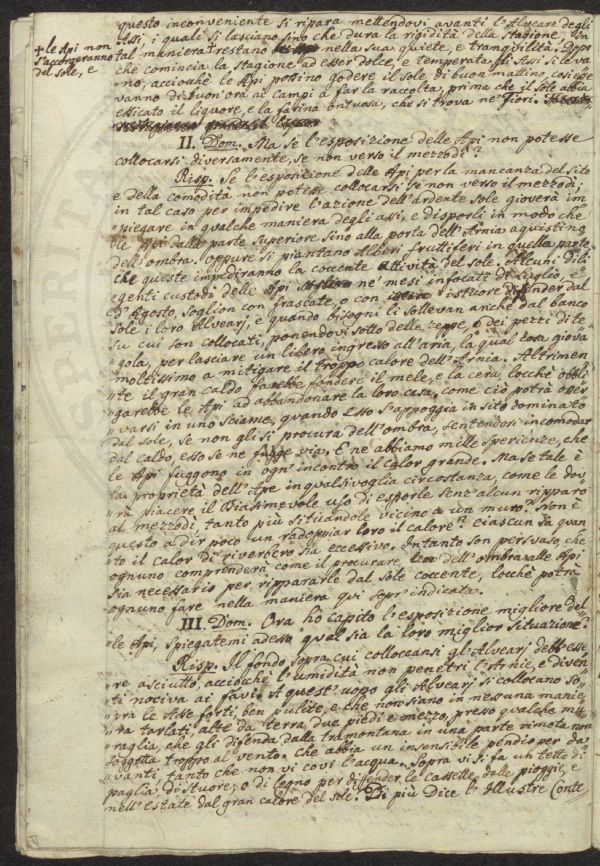 questo inconveniente si ripara mettendovi avanti l'Alveare degli
Assi, i quali si lasciano sino che dura la rigidità della stagione, con
+ le Api non
s'accorgeranno
del sole, e
tal maniera + restano nella sua quiete, e tranquilità. Dopo
che comincia la stagione ad esser dolce, e temperata, gli Assi si leva=
no, acciochè le Api possino godere il sole di buon mattino, così che
vanno di buon'ora ai campi a far la raccolta, prima che il sole abbia
essicato il liquore, e la farina ontuosa, che si trova ne' fiori.
II. Dom. Ma se l'esposizione delle Api non potesse
collocarsi diversamente, se non verso il mezzodì?
Risp. Se l'esposizione delle Api per la mancanza del sito
e della comodità non potesse collocarsi se non verso il mezzodì;
in tal caso per impedire l'azione dell'ardente sole gioverà im=
"piegare in qualche maniera degli assi, e disporli in modo che
le Api dalla parte superiore sino alla porta dell'Arnia aquistino
dell'ombra. oppure si piantano Alberi fruttiferi in quella parte
che queste impediranno la coccente attività del sole. Alcuni dili=
"genti custodi delle Api ne' mesi infocati di Luglio, e
d'Agosto, soglion con frascate, o con istuore difender dal
sole i loro Alvearj, e quando bisogni li sollevan anche dal banco
su cui son collocati, ponendovi sotto delle zeppe, o dei pezzi di te
"gola, per lasciare un libero ingresso all'aria, la qual cosa giova
moltissimo a mitigare il troppo calore dell'Arnia. Altrimen
"te il gran caldo farebbe fondere il mele, e la cera, locchè obbli
"garebbe le Api ad abbandonare la loro casa, come ciò potrà osser
"varsi in uno sciame, quando esso s'appoggia in sito dominato
dal sole, se non gli si procura dell'ombra, sentendosi incomodar
dal caldo, esso se ne fugge via. E ne abbiamo mille sperienze, che
le Api fuggono in ogn'incontro il calor grande. Ma se tale è
la proprietà dell'Ape in qualsivoglia circostanza, come le dov
"rà piacere il biasimevole uso di esporle senz'alcun ripparo
al mezzodì, tanto più situandole vicino a un muro? Non è
questo a dir poco un radoppiar loro il calore? ciascun sa quan
"to il calor di riverbero sia eccessivo. Intanto son persuaso, che
ognuno comprenderà come il procurare dell'ombra alle Api
sia necessario per ripparарle dal sole coccente, locchè potrà
ognuno fare nella maniera qui sopr'indicata.
III. Dom. Ora ho capito l'esposizione migliore del
"le Api, spiegatemi adesso qual sia la loro miglior situazione?
Risp. Il fondo sopra cui colloccansi gl'Alvearj dev'esse
"re asciutto, acciochè l'umidità non penetri l'Arnie, e diven
"ti nociva ai favi. A quest'uopo gli Alvearj si collocano so
"pra le Asse forti, ben pulite, e che non siano in nessuna manie
"ra tarlati, alte da terra due piedi e mezzo, presso qualche mu
"raglia, che gli difenda dalla tramontana in una parte rimota non
soggetta troppo al vento. che abbia un insensibile pendio per da
"vanti, tanto che non vi covi l'acqua. Sopra vi si fa un tetto di
paglia, di stuore, o di legno per difender le cassette dalle pioggie, e
nell'estate dal gran calore del sole. Di più Dice l'Illustre Conte